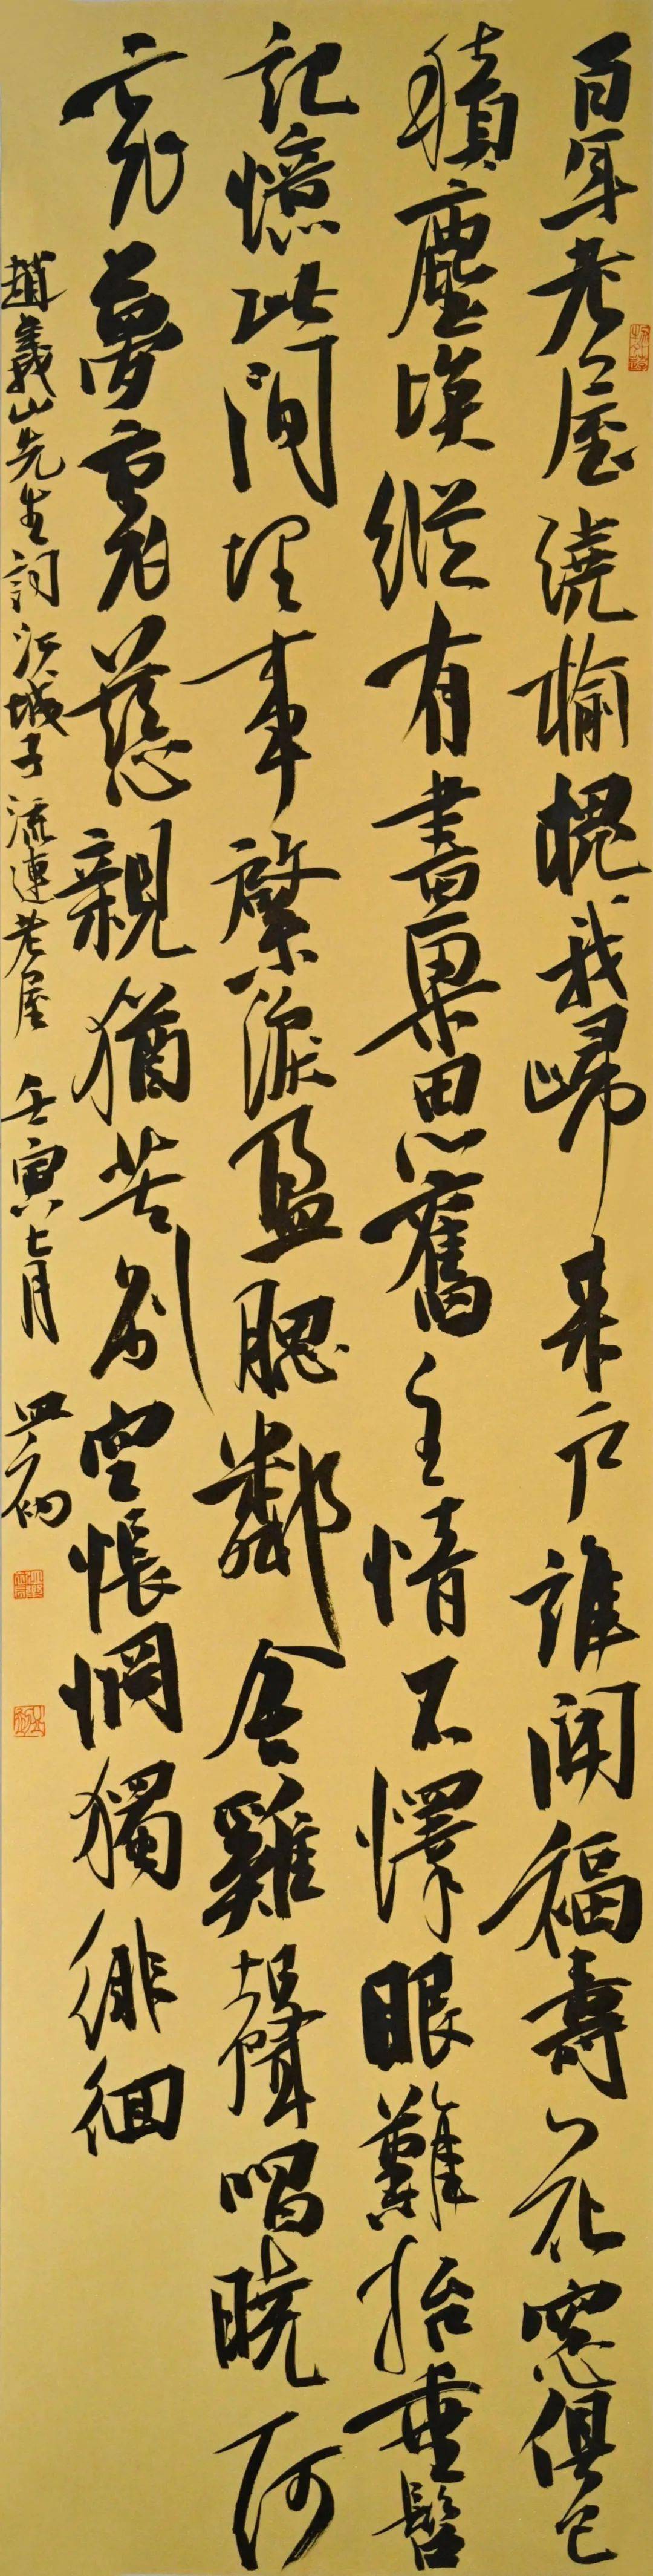 百年老屋繞榆槐我歸来戶誰開福壽花窓俱已
積塵埃縱有書畫思舊主情不懌眼難抬垂髫
記憶此間埋事縈懷淚盈腮鄰舍雞聲唱曉何
哀夢裏慈親猶苦別空悵惘獨徘徊
趙義山先生詞江城子流連老屋 壬寅七月